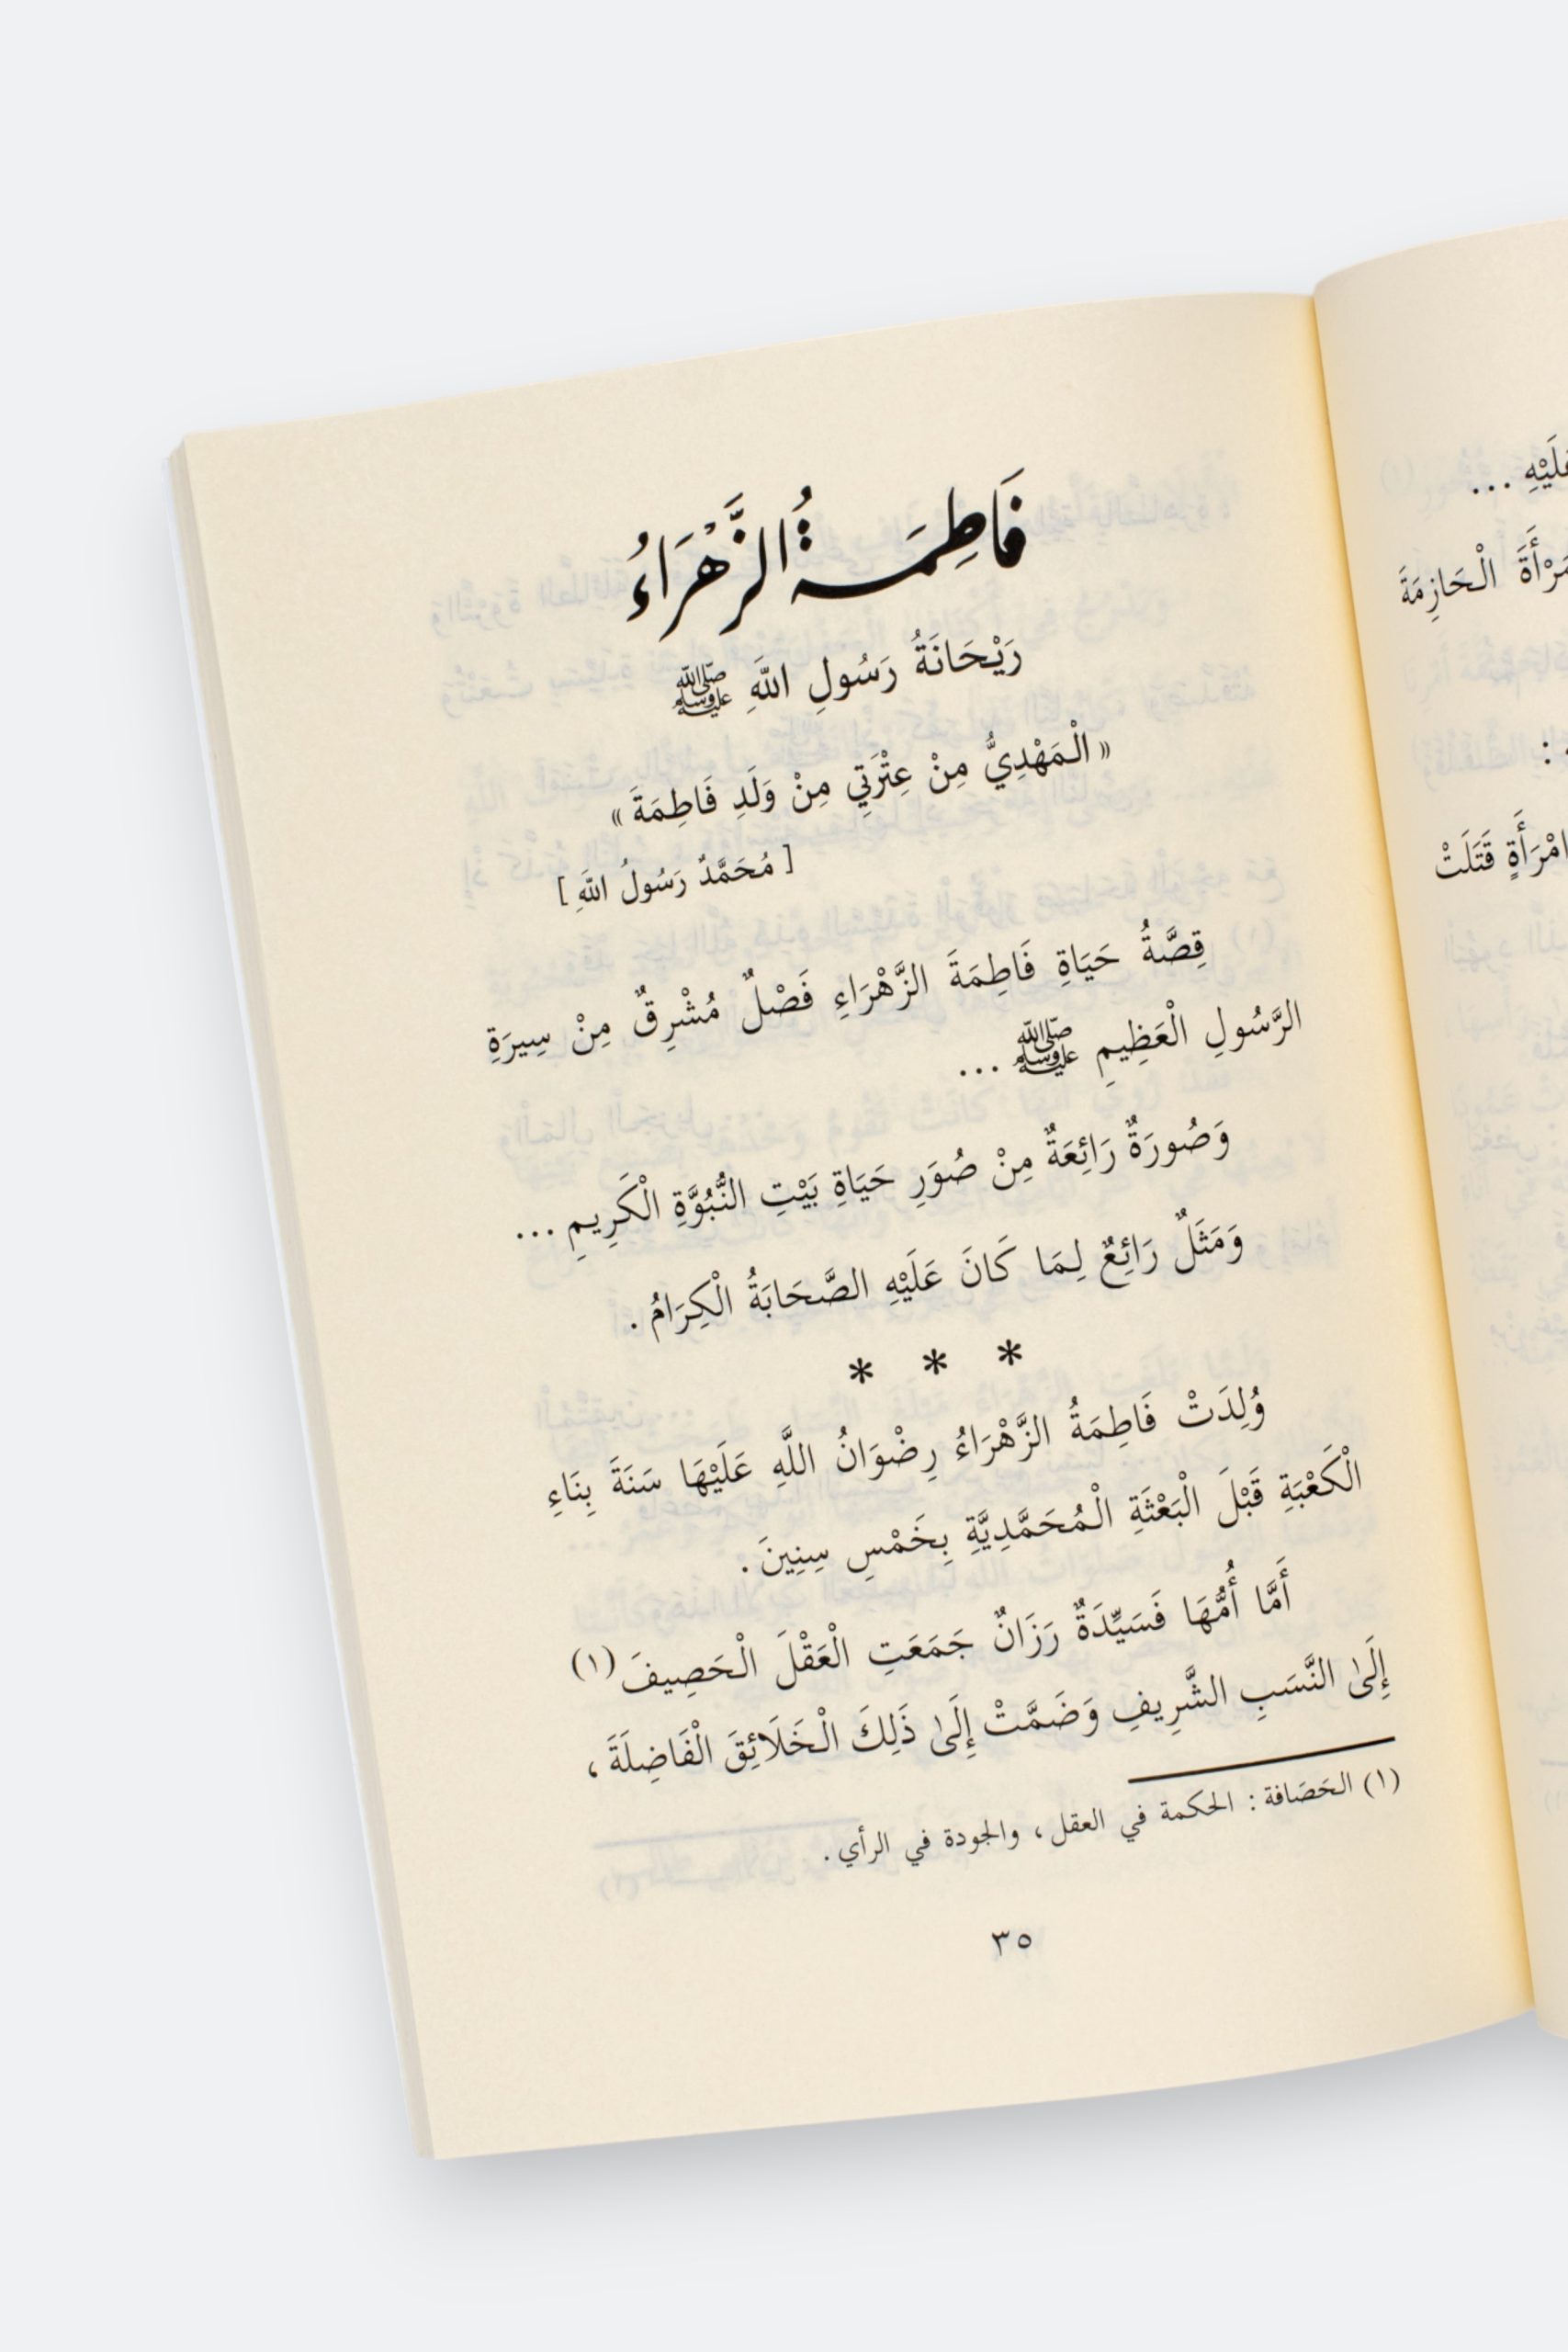 فَاطِمَةُ الزَّهْرَاءُ
رَيْحَانَةُ رَسُولِ اللهِ ﷺ
« الْمَهْدِيُّ مِنْ عِتْرَتِي مِنْ وَلَدِ فَاطِمَةَ »
[ مُحَمَّدٌ رَسُولُ اللهِ ]
قِصَّةُ حَيَاةِ فَاطِمَةَ الزَّهْرَاءِ فَصْلٌ مُشْرِقٌ مِنْ سِيرَةِ
الرَّسُولِ الْعَظِيمِ ﷺ ...
وَصُورَةٌ رَائِعَةٌ مِنْ صُوَرِ حَيَاةِ بَيْتِ النُّبُوَّةِ الْكَرِيمِ ...
وَمَثَلٌ رَائِعٌ لِمَا كَانَ عَلَيْهِ الصَّحَابَةُ الْكِرَامُ .
* * *
وُلِدَتْ فَاطِمَةُ الزَّهْرَاءُ رِضْوَانُ اللَّهِ عَلَيْهَا سَنَةَ بِنَاءِ
الْكَعْبَةِ قَبْلَ الْبَعْثَةِ الْمُحَمَّدِيَّةِ بِخَمْسِ سِنِينَ .
أَمَّا أُمُّهَا فَسَيِّدَةٌ رَزَانٌ جَمَعَتِ الْعَقْلَ الْحَصِيفَ (١)
إِلَىٰ النَّسَبِ الشَّرِيفِ وَضَمَّتْ إِلَىٰ ذَلِكَ الْخَلَائِقَ الْفَاضِلَةَ ،
(١) الحَصَافة : الحكمة في العقل ، والجودة في الرأي .
٣٥
عَلَيْهِ ...
الْحَازِمَةَ
:
امْرَأَةٍ قَتَلَتْ